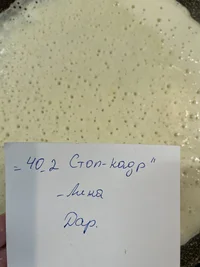 = 40_2 Стоп-кадр"
- Лина
Дар.